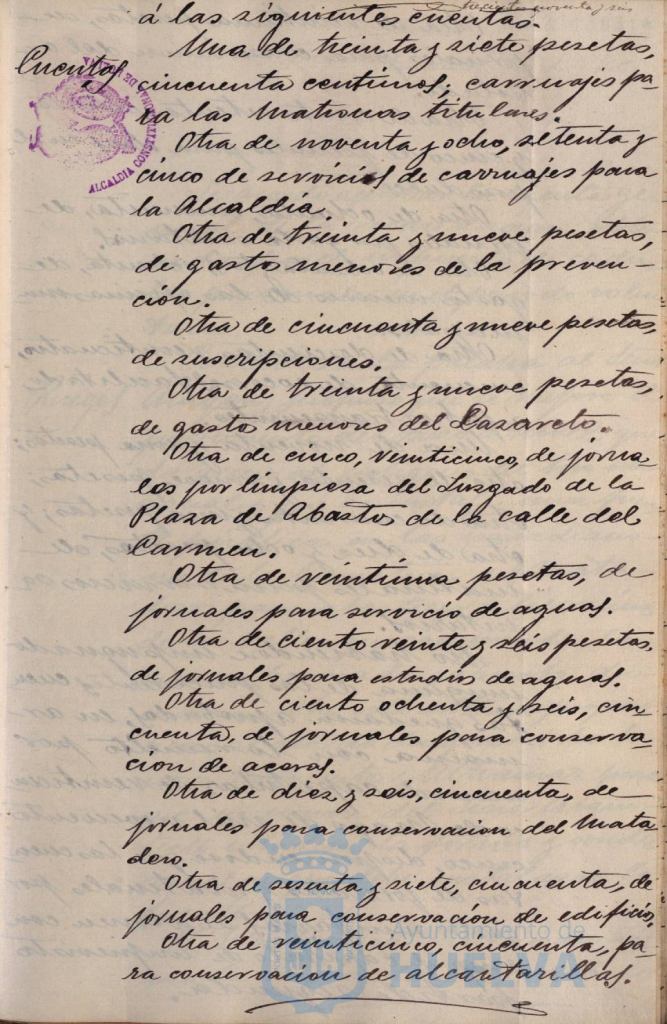 trescientos noventa y seis
á las siguientes cuentas.
Cuentas
Una de treinta y siete pesetas,
cincuenta centimos; carruajes pa-
ra las Matronas titulares.
ALCALDIA CONSTITUCIONAL DE HUELVA
Otra de noventa y ocho, setenta y
cinco de servicios de carruajes para
la Alcaldía.
Otra de treinta y nueve pesetas,
de gastos menores de la preven-
ción.
Otra de cincuenta y nueve pesetas,
de suscripciones.
Otra de treinta y nueve pesetas,
de gasto menores del Lazareto.
Otra de cinco, veinticinco, de jorna-
les por limpieza del Juzgado de la
Plaza de Abastos de la calle del
Carmen.
Otra de veintiuna pesetas, de
jornales para servicio de aguas.
Otra de ciento veinte y seis pesetas,
de jornales para estudios de aguas.
Otra de ciento ochenta y seis, cin-
cuenta, de jornales para conserva-
cion de aceras.
Otra de diez y seis, cincuenta, de
jornales para conservacion del Mata
dero.
Otra de sesenta y siete, cincuenta, de
jornales para conservación de edificio,
Otra de veinticinco, cincuenta, pa-
ra conservacion de alcantarillas.
Ayuntamiento de
HUELVA